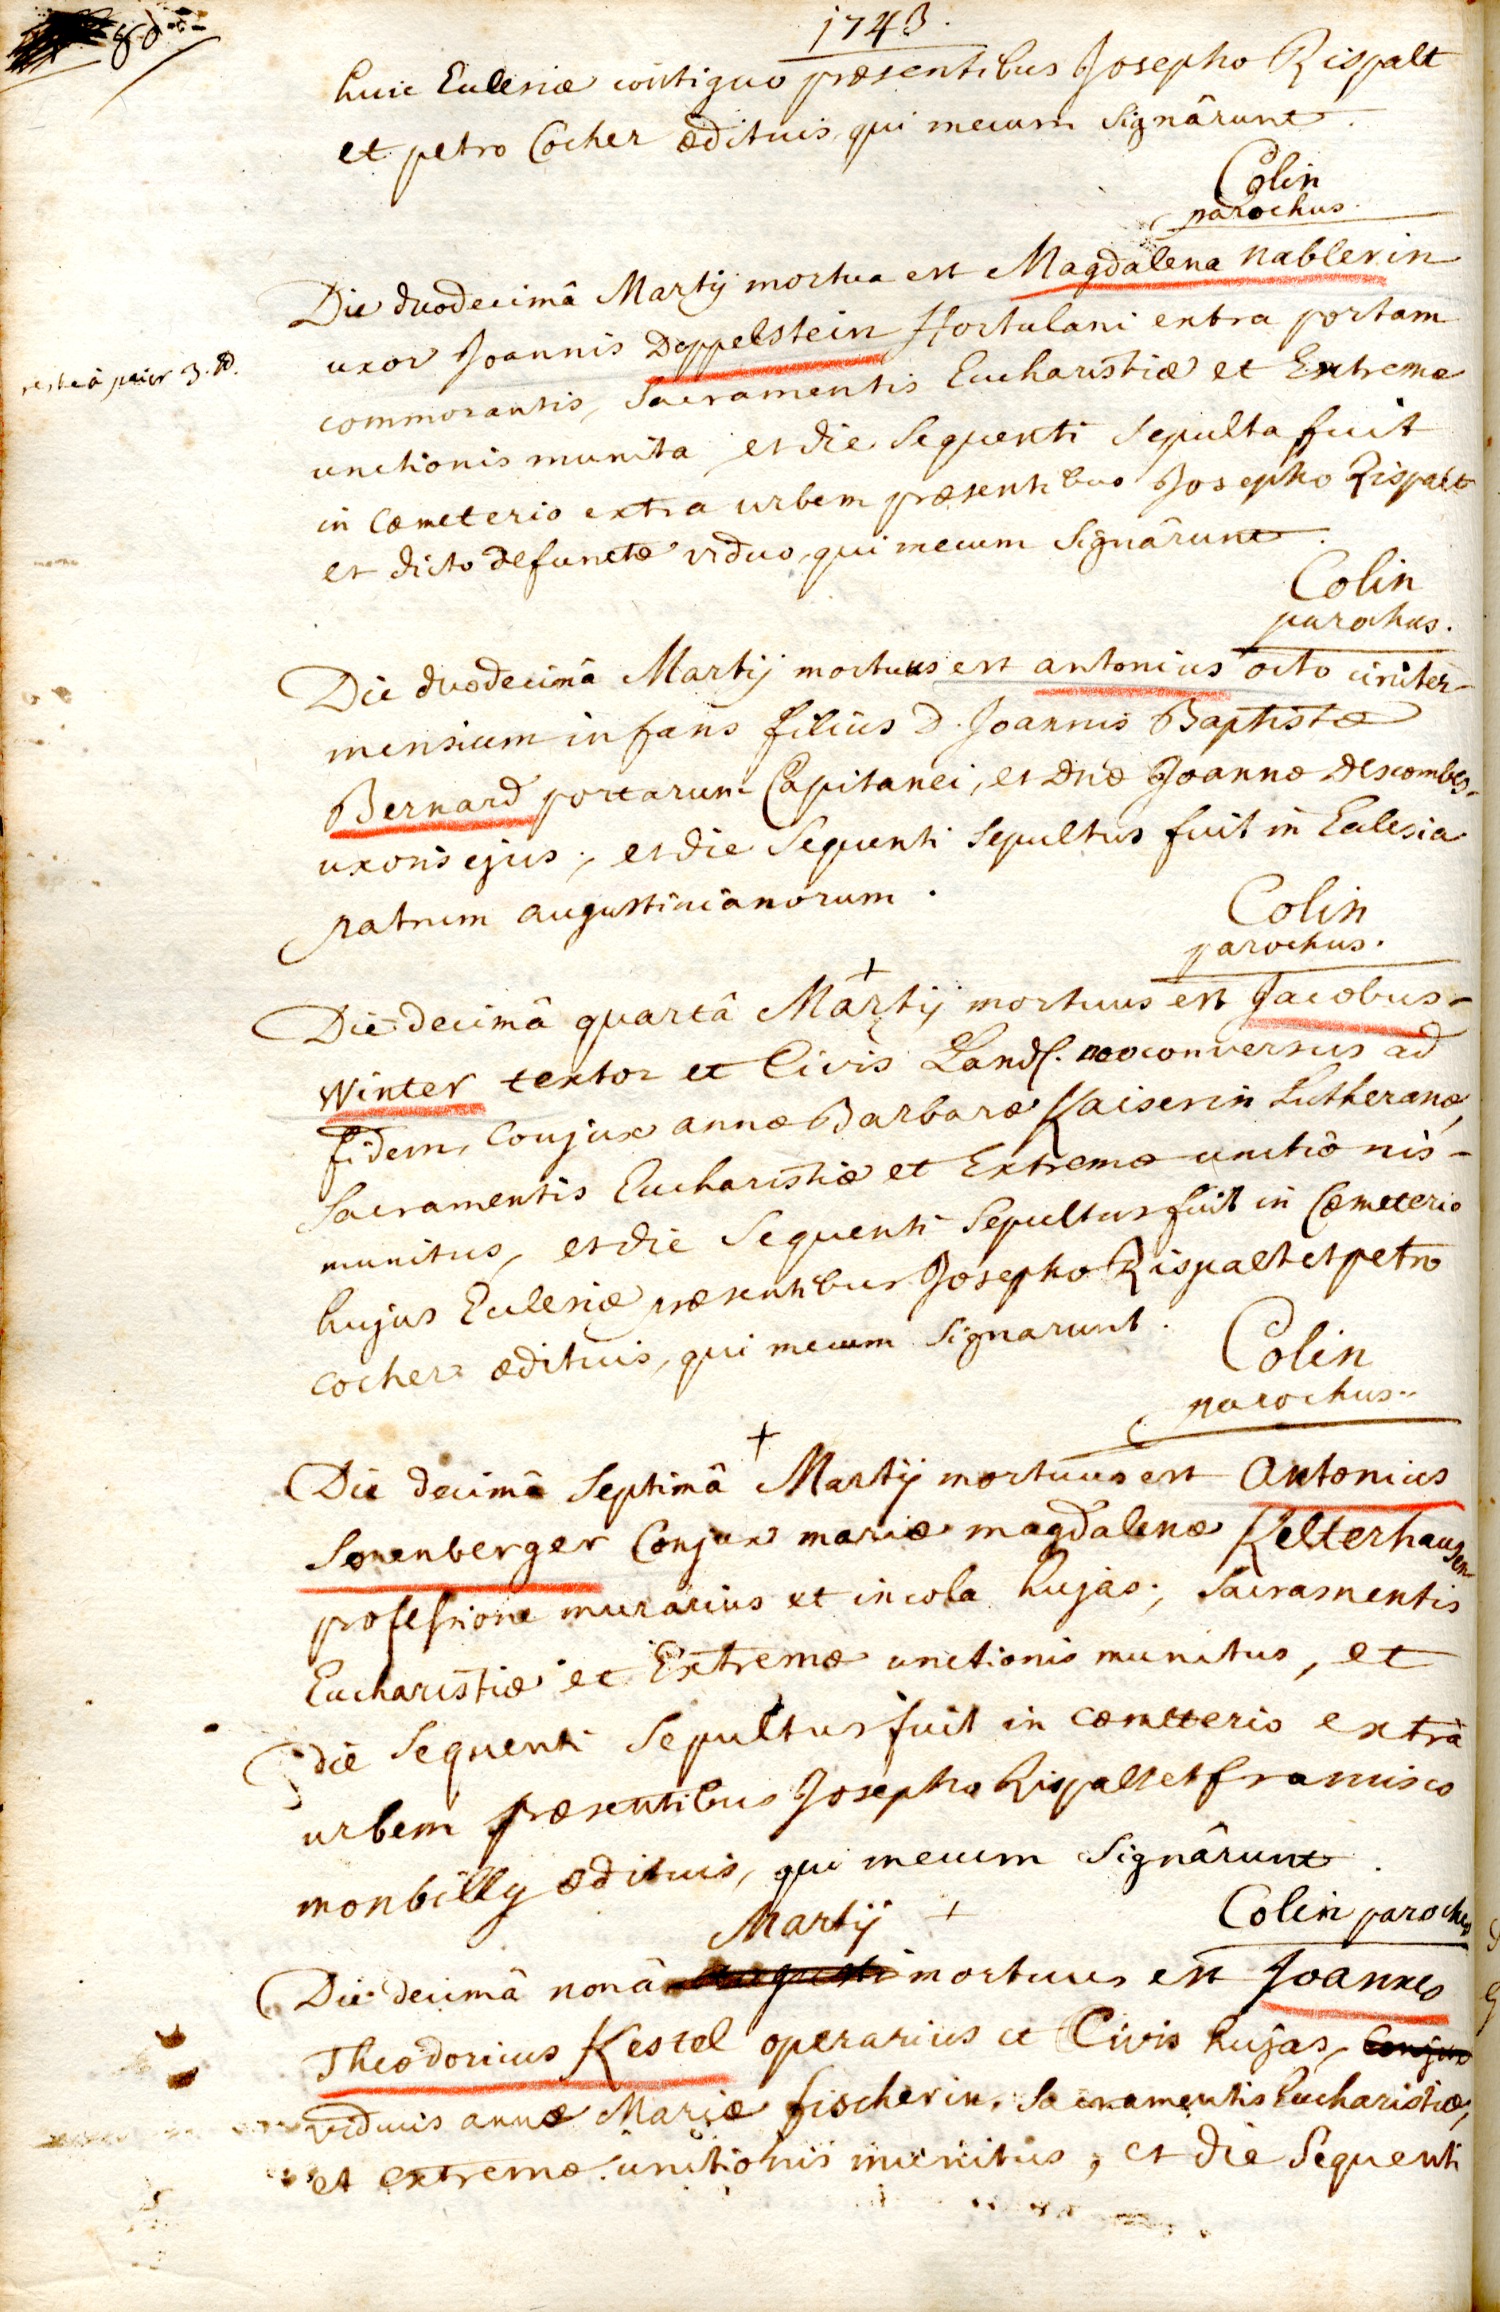 1743.
huic Eclesiæ contiguo præsentibus Josepho Rispalt
et petro Cocher ædituis, qui mecum signârunt.
Colin
parochus.
Die duodecimâ Martij mortua est Magdalena nablerin
uxor Joannis Doppelstein Hortulani extra portam
reste à paier 3. #.
commorantis, sacramentis Eucharistiæ et Extremæ
unctionis munita et die sequenti sepulta fuit
in Cæmeterio extra urbem præsentibus Josepho Rispalt
et dicto defunctæ viduo, qui mecum signârunt.
Colin
parochus.
Die duodecimâ Martij mortuus est antonius octo circiter
mensium infans filius D. Joannis Baptistæ
Bernard portarum Capitanei, et Dnæ Joannæ Descombes
uxoris ejus, et die sequenti sepultus fuit in Eclesia
patrum augustinianorum.
Colin
parochus.
Die decimâ quartâ Martij mortuus est Jacobus
Winter textor et Civis Land. neoconversus ad
fidem, Conjux annæ Barbaræ Kaiserin Lutheranæ,
sacramentis Eucharistiæ et Extremæ unctionis
munitus, et die sequenti sepultus fuit in Cæmeterio
hujus Eclesiæ præsentibus Josepho Rispalt et petro
cocher ædituis, qui mecum signarunt.
Colin
parochus.
Die decimâ septimâ Martij mortuus est Antonius
Sonenberger Conjux mariæ magdalenæ Kelterhausen
professione murarius et incola hujas, sacramentis
Eucharistiæ et Extremæ unctionis munitus, et
die sequenti sepultus fuit in cæmeterio extrà
urbem præsentibus Josepho Rispalt et francisco
monbilly ædituis, qui mecum signârunt.
Colin parochus
Martij
Die decimâ nonâ mortuus est Joannes
Theodoricus Kestel operarius et Civis hujas, Conjux
viduus annæ Mariæ fischerin, Sacramentis Eucharistiæ,
et extremæ unctionis munitus, et die sequenti